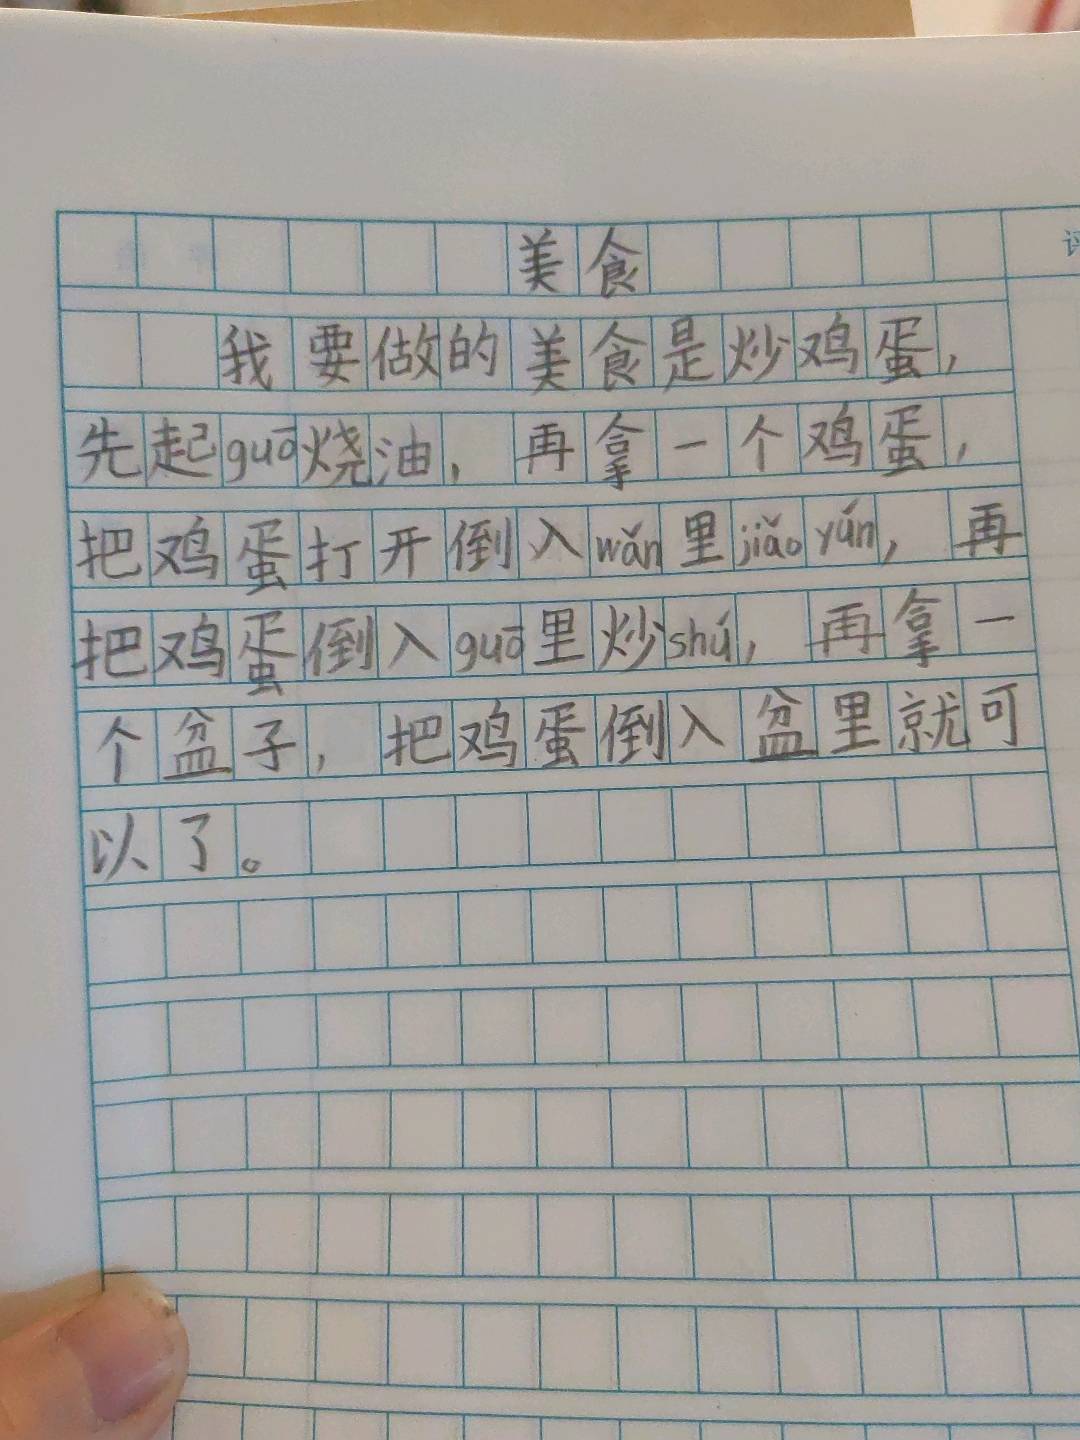 美食
我要做的美食是炒鸡蛋,
先起guō烧油,再拿一个鸡蛋,
把鸡蛋打开倒入wǎn里jiǎoyún,再
把鸡蛋倒入guō里炒shú,再拿一
个盆子,把鸡蛋倒入盆里就可
以了。